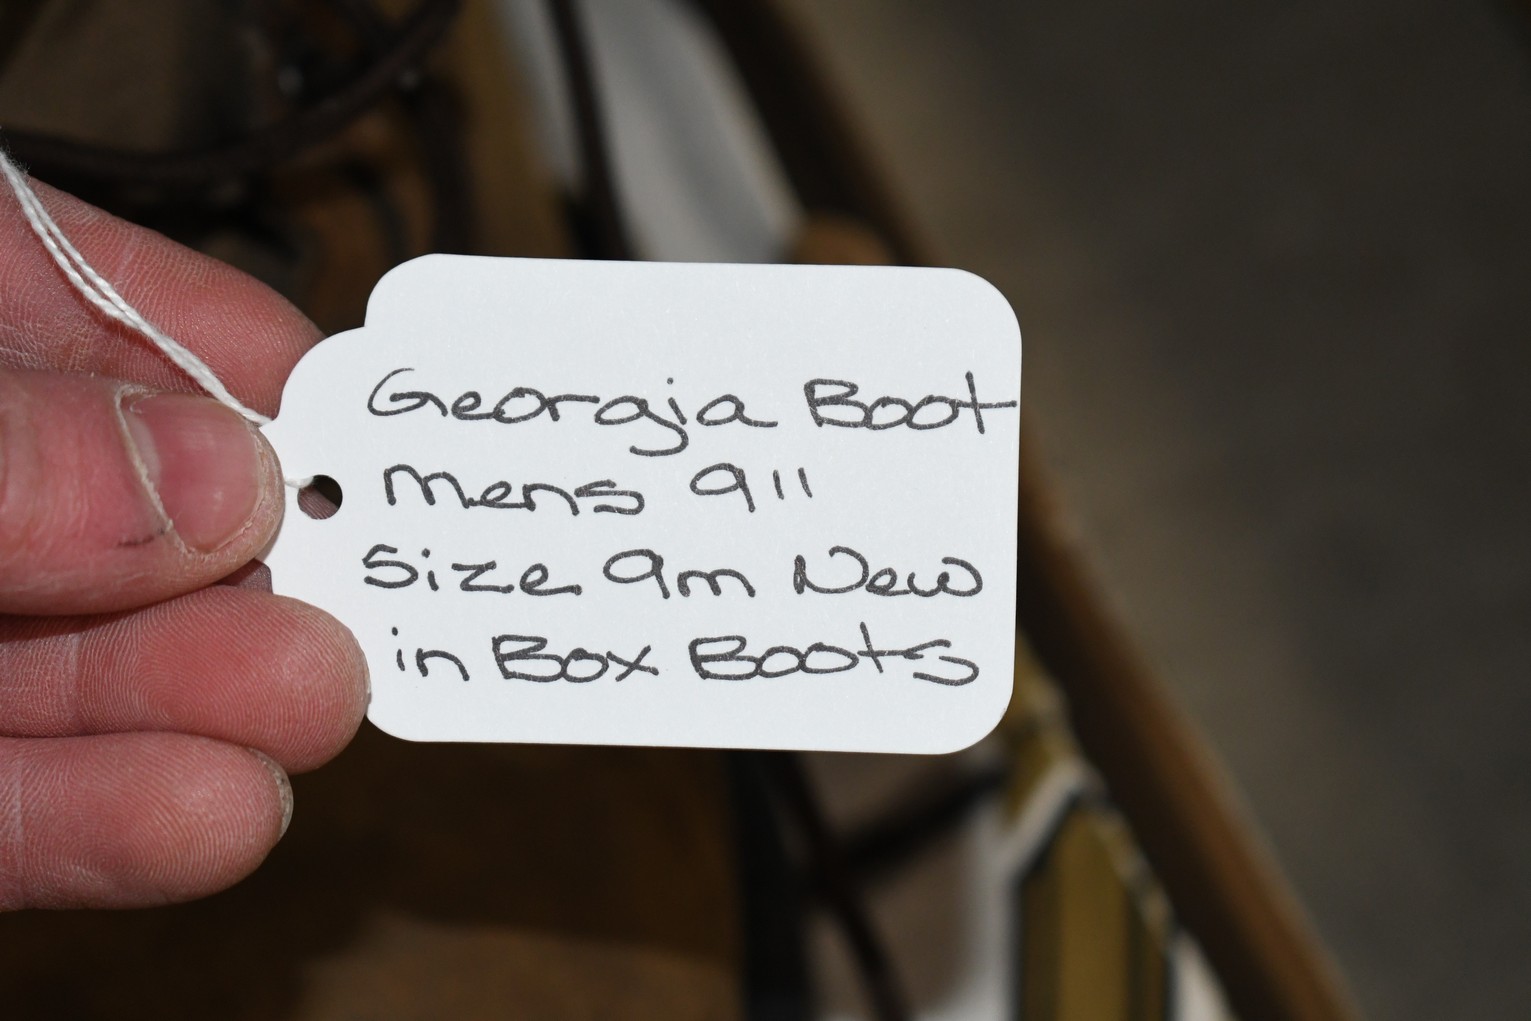 Georgia Boot
Mens 9"
Size 9m New
in Box Boots